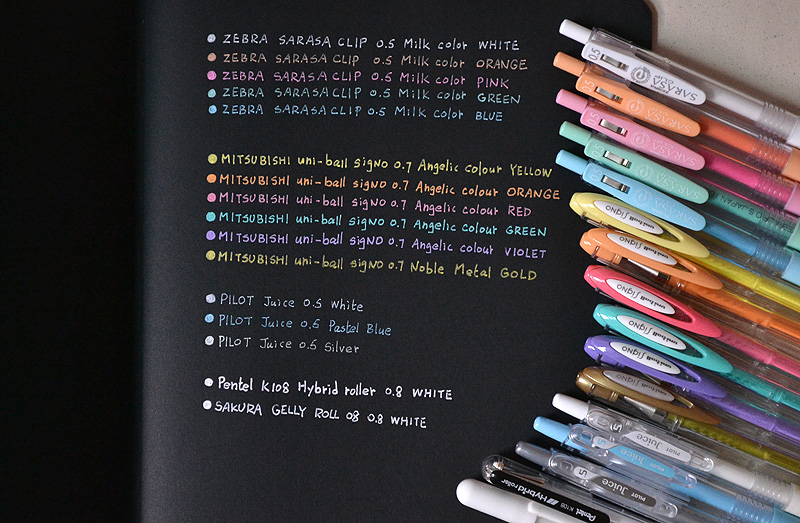 ZEBRA SARASA CLIP 0.5 Milk color WHITE
ZEBRA SARASA CLIP 0.5 Milk color ORANGE
ZEBRA SARASA CLIP 0.5 Milk color PINK
ZEBRA SARASA CLIP 0.5 Milk color GREEN
ZEBRA SARASA CLIP 0.5 Milk color BLUE
MITSUBISHI uni-ball sigNO 0.7 Angelic colour YELLOW
MITSUBISHI uni-ball sigNO 0.7 Angelic colour ORANGE
MITSUBISHI uni-ball sigNO 0.7 Angelic colour RED
MITSUBISHI uni-ball sigNO 0.7 Angelic colour GREEN
MITSUBISHI uni-ball sigNO 0.7 Angelic colour VIOLET
MITSUBISHI uni-ball sigNO 0.7 Noble Metal GOLD
PILOT Juice 0.5 White
PILOT Juice 0.5 Pastel Blue
PILOT Juice 0.5 Silver
Pentel K108 Hybrid roller 0.8 WHITE
SAKURA GELLY ROLL 08 0.8 WHITE
0.5 SARASA CLIP ZEBRA
SARASA
SARASA
SARASA
SARASA
JAPAN
uni-ball Signo
uni-ball Signo
uni-ball Signo
uni-ball Signo
uni-ball Signo
uni-ball Signo
PILOT Juice
PILOT Juice
PILOT Juice 05
Pentel K108 Hybrid roller